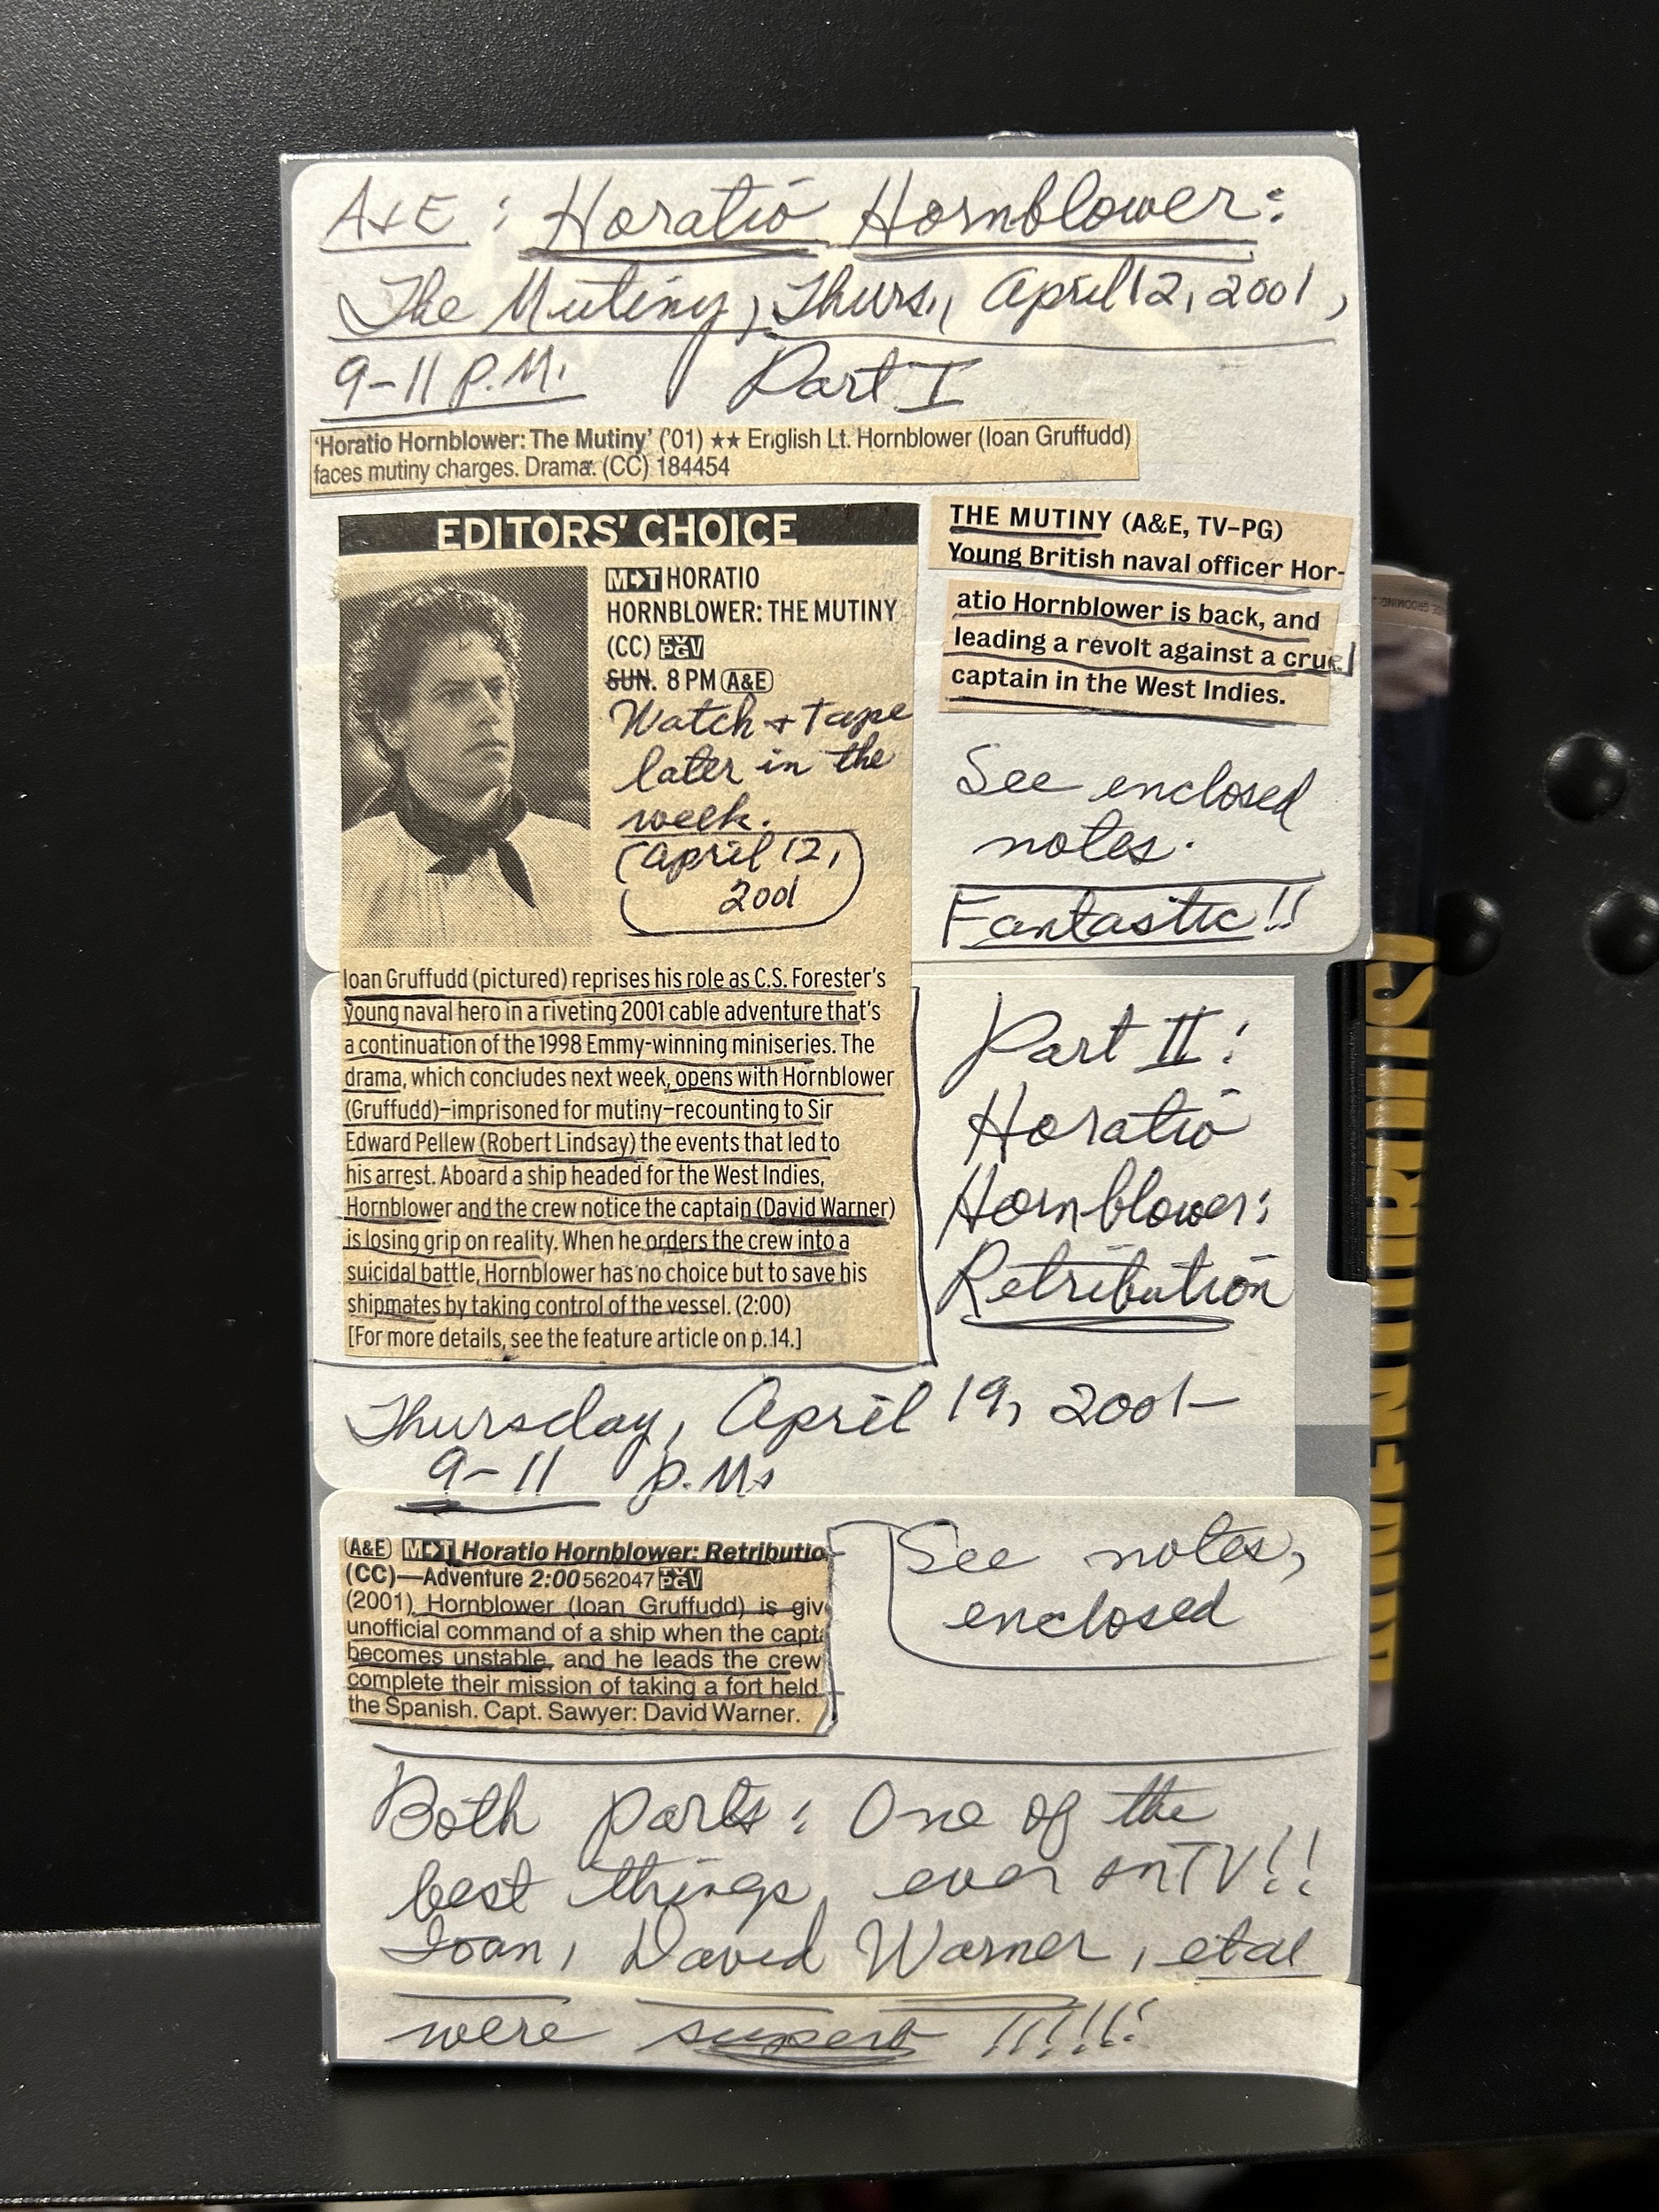 A&E: Horatio Hornblower:
The Mutiny, Thurs., April 12, 2001,
9-11 P.M. Part I
'Horatio Hornblower: The Mutiny' ('01) ★★ English Lt. Hornblower (Ioan Gruffudd)
faces mutiny charges. Drama. (CC) 184454
EDITORS' CHOICE
M▸T HORATIO
HORNBLOWER: THE MUTINY
(CC) TV PG V
SUN. 8 PM (A&E)
Watch + Tape
later in the
week.
(April 12,
2001
Ioan Gruffudd (pictured) reprises his role as C.S. Forester's
young naval hero in a riveting 2001 cable adventure that's
a continuation of the 1998 Emmy-winning miniseries. The
drama, which concludes next week, opens with Hornblower
(Gruffudd)—imprisoned for mutiny—recounting to Sir
Edward Pellew (Robert Lindsay) the events that led to
his arrest. Aboard a ship headed for the West Indies,
Hornblower and the crew notice the captain (David Warner)
is losing grip on reality. When he orders the crew into a
suicidal battle, Hornblower has no choice but to save his
shipmates by taking control of the vessel. (2:00)
[For more details, see the feature article on p. 14.]
THE MUTINY (A&E, TV-PG)
Young British naval officer Hor-
atio Hornblower is back, and
leading a revolt against a cruel
captain in the West Indies.
See enclosed
notes.
Fantastic!!
Part II:
Horatio
Hornblower:
Retribution
Thursday, April 19, 2001-
9-11 p.m.
(A&E) M▸T Horatio Hornblower: Retributio
(CC)—Adventure 2:00 562047 TV PG V
(2001) Hornblower (Ioan Gruffudd) is giv
unofficial command of a ship when the capta
becomes unstable, and he leads the crew
complete their mission of taking a fort held
the Spanish. Capt. Sawyer: David Warner.
See notes,
enclosed
Both parts: One of the
best things ever on TV!!
Ioan, David Warner, et al
were superb !!!!!